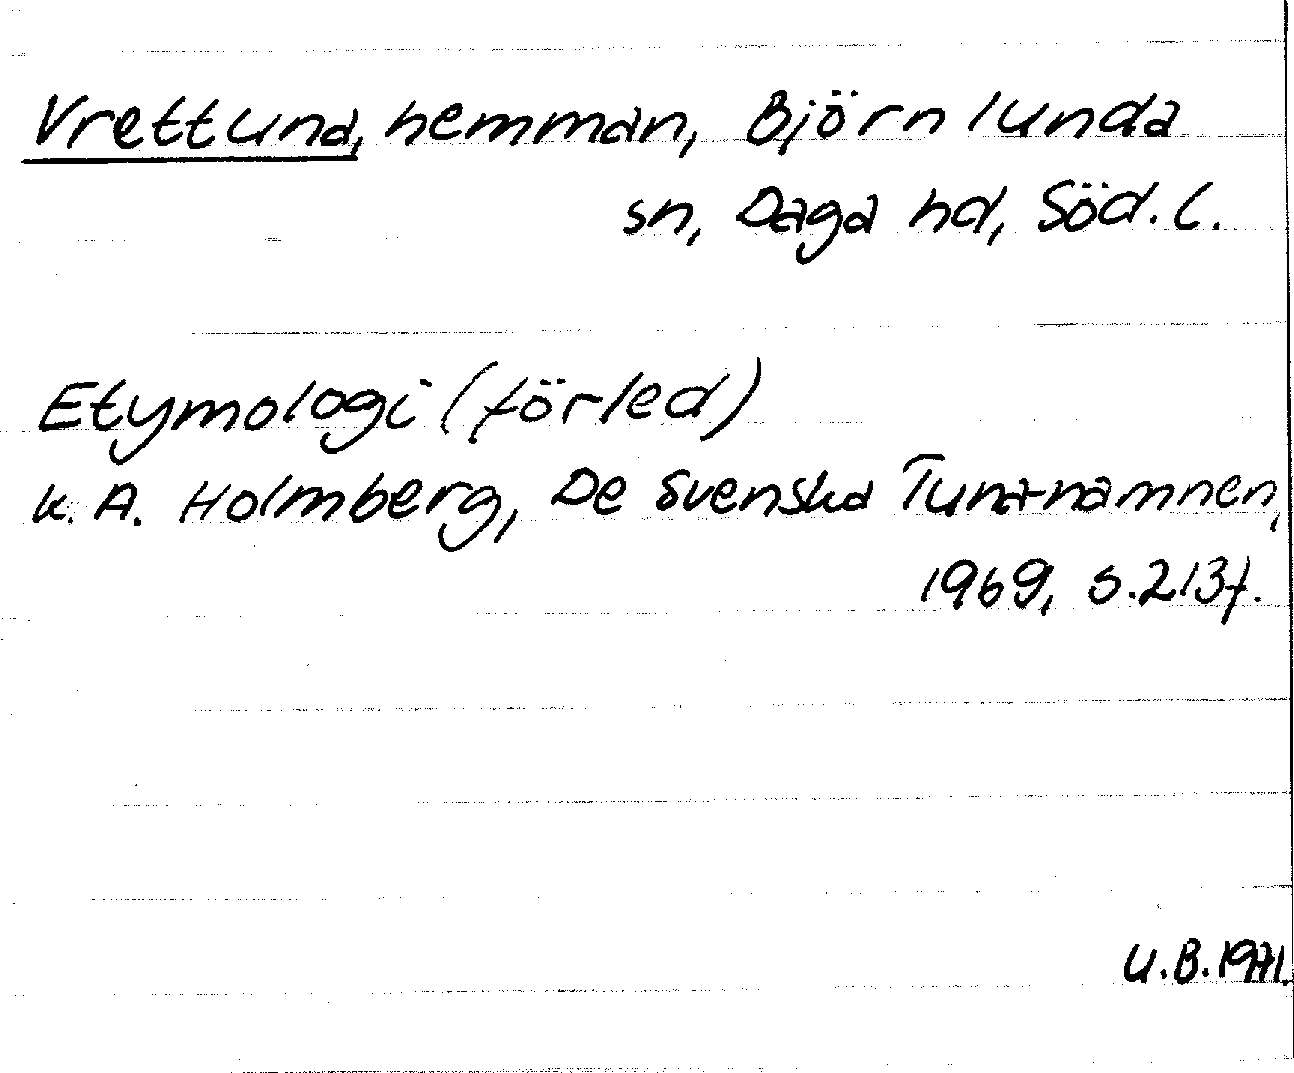 Vrettuna, hemman, Björnlunda
sn, Daga hd, Söd. l.
Etymologi (förled)
K. A. Holmberg, De svenska Tuna-namnen,
1969, s. 213f.
U.B. 1971.